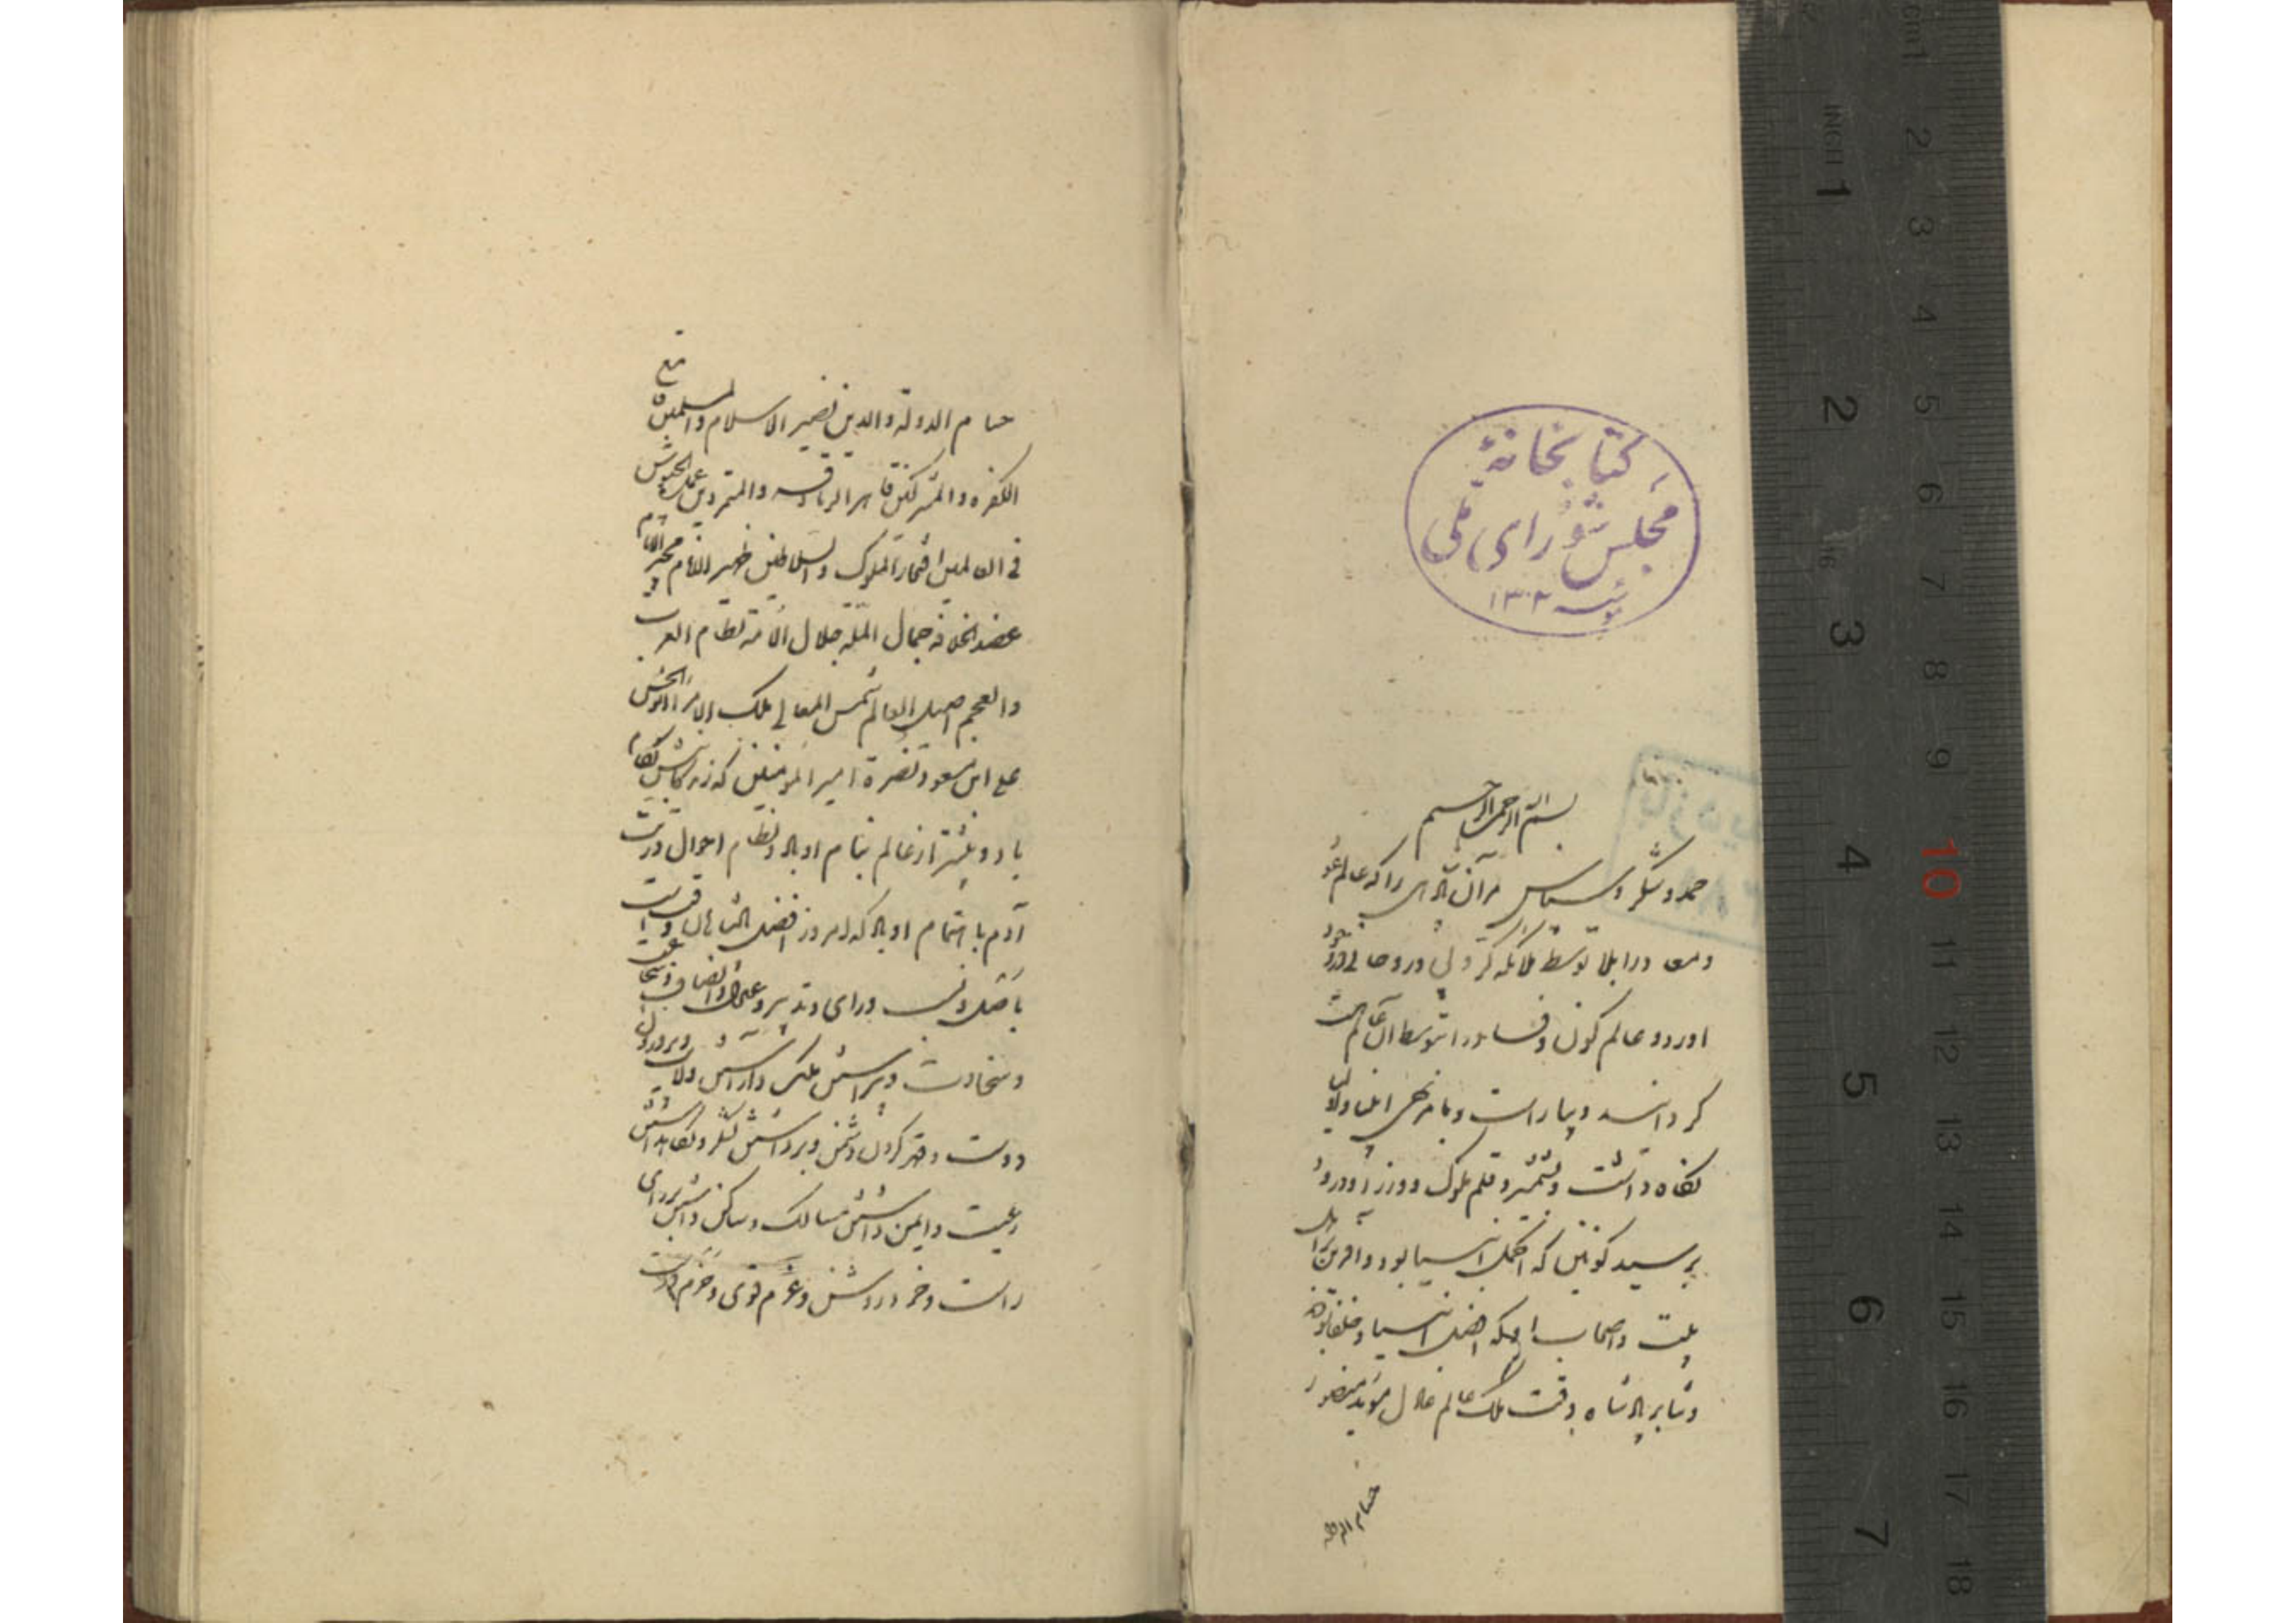 کتابخانهٔ
مجلس شورای ملی
سنه ۱۳۰۲
بسم الله الرحمن الرحیم
حمد و شکر و سپاس مر آن پادشاهی را که عالم عود
و معاد را بتوسط ملائکه کروبی و روحانی در وجود
اورد و عالم کون و فساد را بتوسط آن عالم هست
کردانید و بیاراست و بامر و نهی انبیا و اولیا
نکاه داشت و بشمشیر و قلم ملوک و وزرا و درود
بر سید کونین که اکمل انبیا بود و افرین بر اهل
بیت و اصحاب او که افضل انبیا و خلفا بودند
و ثنا بر پادشاه وقت ملک عالم عادل موید منصور
حسام الدوله
حسام الدولة والدین نصیر الاسلام والمسلمین قامع
الکفره والمشرکین قاهر الزنادقه والمتمردین عمدة الجیوش
فی العالمین افتخار الملوک والسلاطین ظهیر الانام مجیر الایام
عضد الخلافه جمال المله جلال الامه نظام العرب
والعجم اصیل العالم شمس المعالی ملک الامرا ابو الحسن
علی ابن مسعود نصرة امیر المومنین که زندکانیش بکام
باد و بیشتر از عالم بنام او باد و نظام احوال ذریت
آدم باهتمام او باد که امروز افضل پادشاهان وقت است
باصل و نسب و رای و تدبیر و عدل و انصاف و شجاعت
و سخاوت و پیراستن ملک و آراستن ولایت و پروردن
دوست و قهر کردن دشمن و برداشتن لشکر و نکاهداشتن
رعیت و ایمن داشتن مسالک و ساکن داشتن برای
راست و خرد روشن و عزم قوی و حزم درست